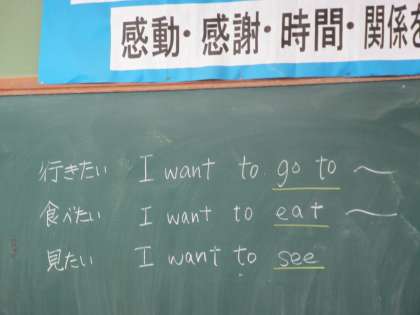 感動・感謝・時間・関係を
行きたい I want to go to ～
食べたい I want to eat ～
見たい I want to see